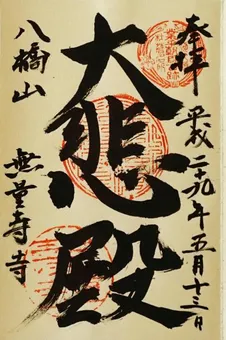 奉拝
平成二十九年五月十三日
大悲殿
八橋山
無量寿寺